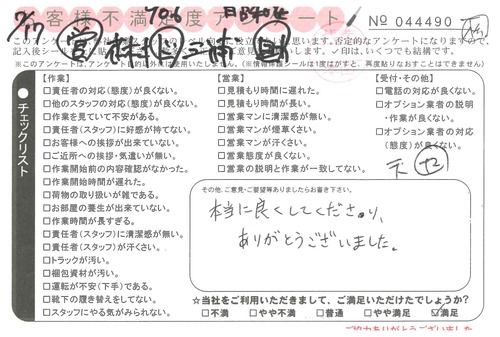 お客様不満足度アンケート
No 044490
※このアンケートは、アンケート目的以外には使用いたしません。(※情報保護シールは1度はがすと、再度貼りなおすことはできません)
チェックリスト
【作業】
□責任者の対応(態度)が良くない。
□他のスタッフの対応(態度)が良くない。
□作業を見ていて不安がある。
□責任者(スタッフ)に好感が持てない。
□お客様への挨拶が出来ていない。
□ご近所への挨拶・気遣いが無い。
□作業開始前の内容確認がなかった。
□作業開始時間が遅れた。
□荷物の取り扱いが雑である。
□お部屋の養生が出来ていない。
□作業時間が長すぎる。
□責任者(スタッフ)に清潔感が無い。
□責任者(スタッフ)が汗くさい。
□トラックが汚い。
□梱包資材が汚い。
□運転が不安(下手)である。
□靴下の履き替えをしてない。
□スタッフにやる気がみられない。
【営業】
□見積もり時間に遅れた。
□見積もり時間が長い。
□営業マンに清潔感が無い。
□営業マンが煙草くさい。
□営業マンが汗くさい。
□営業態度が良くない。
□営業の説明と作業が一致してない。
【受付・その他】
□電話の対応が良くない。
□オプション業者の説明・作業が良くない。
□オプション業者の対応(態度)が良くない。
その他、ご意見・ご要望等ありましたらお書き下さい。
本当に良くしてくださり、
ありがとうございました。
☆当社をご利用いただきまして、ご満足いただけたでしょうか?
□不満 □やや不満 □普通 □やや満足 ☑満足
ご協力ありがとうございました